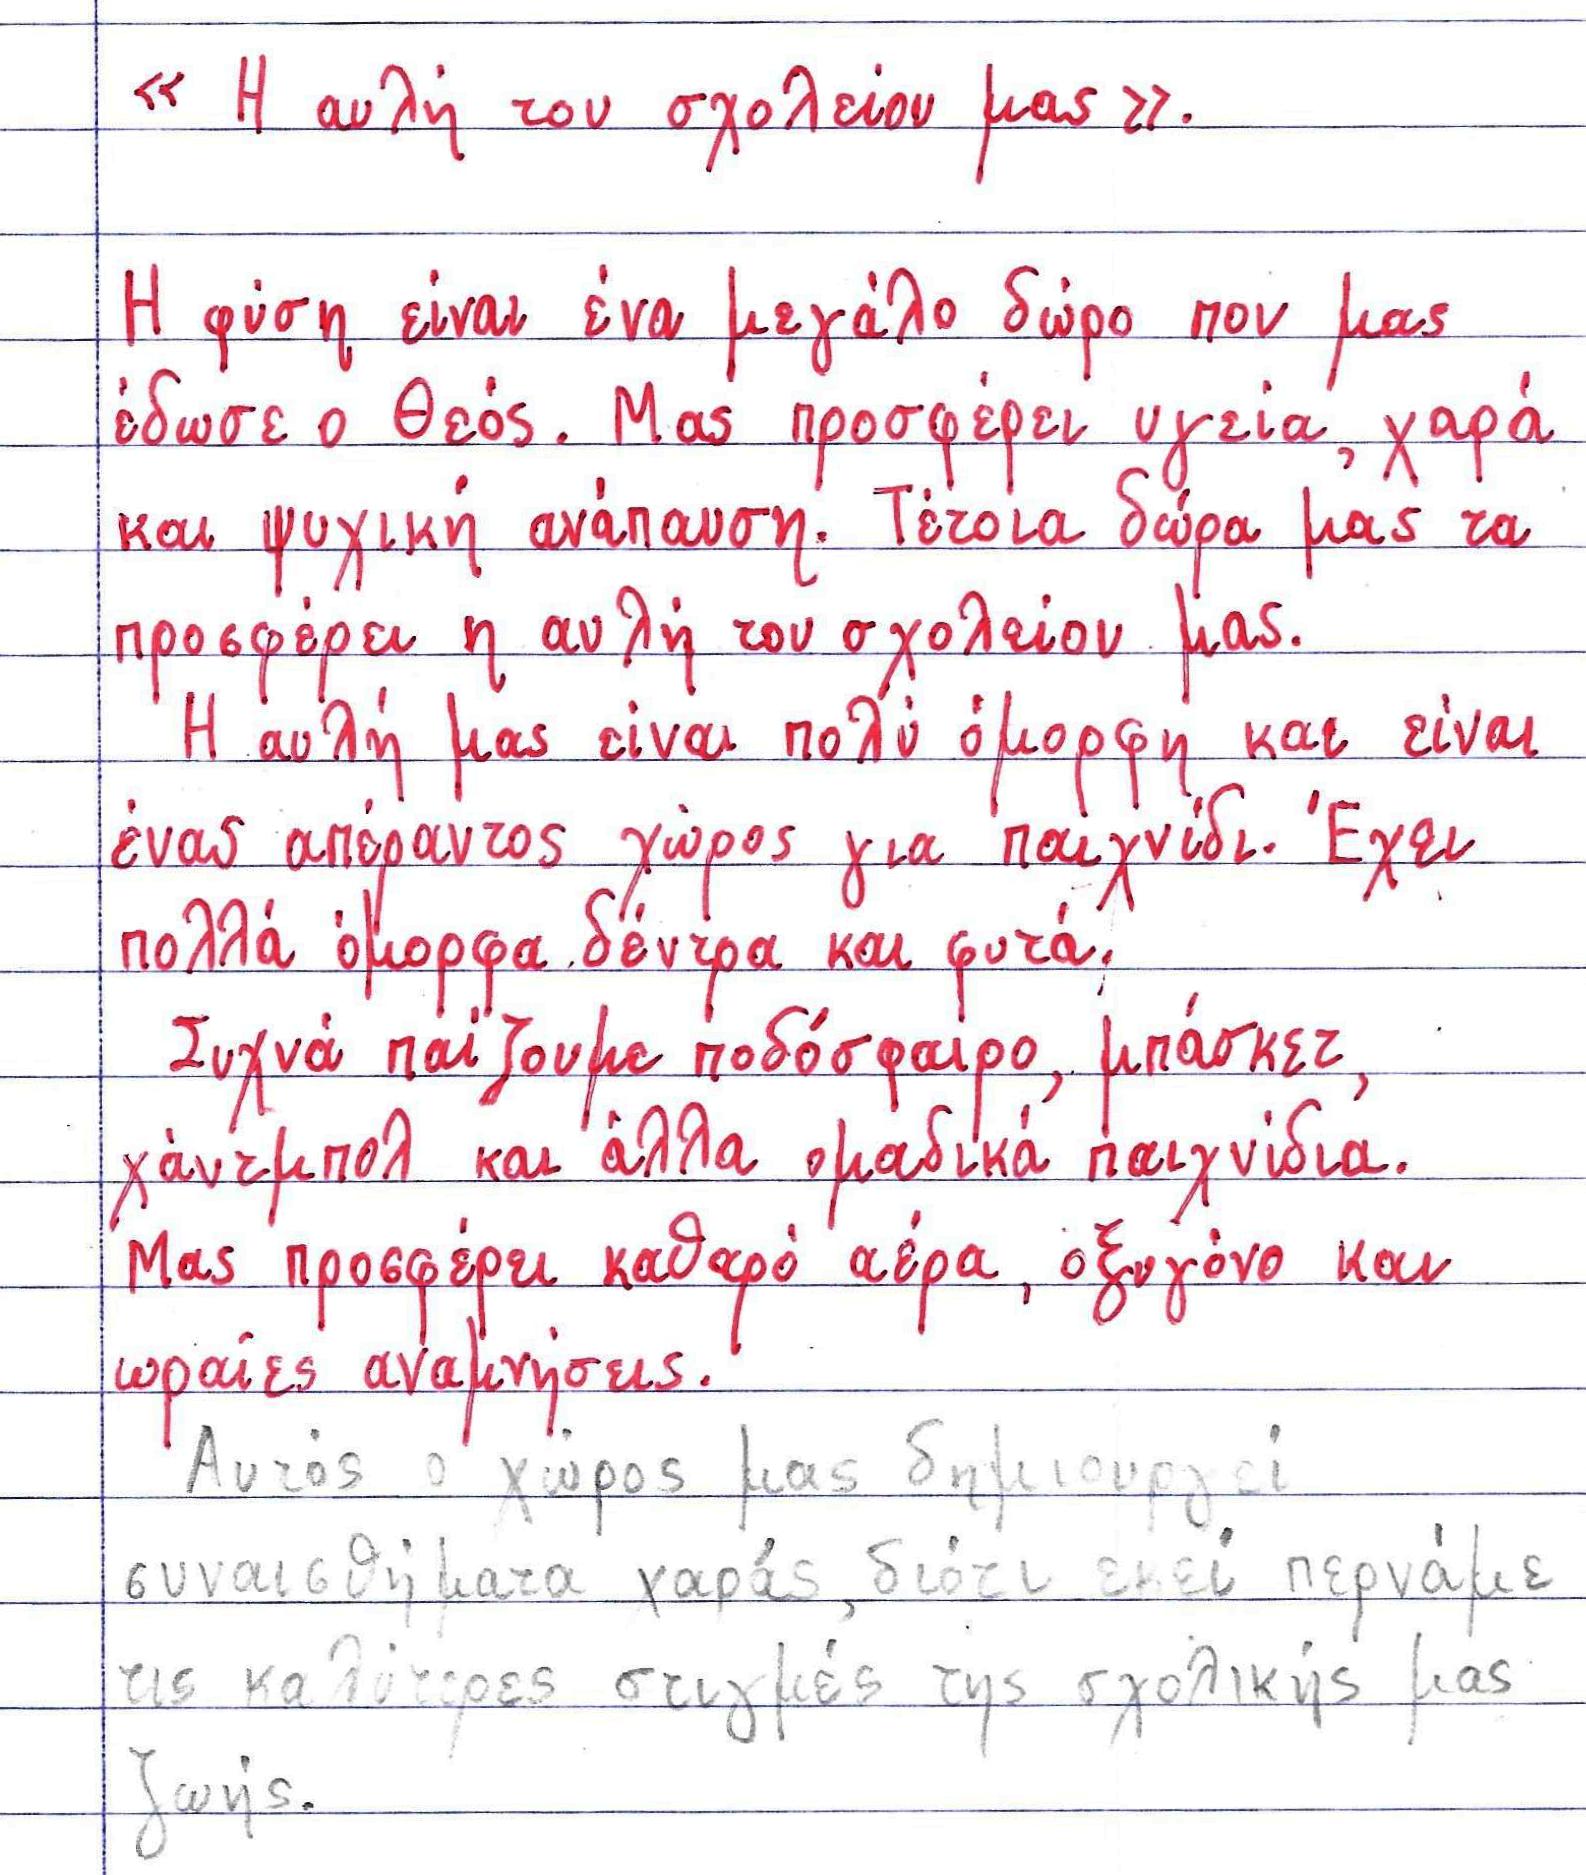 « Η αυλή του σχολείου μας ».
Η φύση είναι ένα μεγάλο δώρο που μας
έδωσε ο Θεός. Μας προσφέρει υγεία, χαρά
και ψυχική ανάπαυση. Τέτοια δώρα μας τα
προσφέρει η αυλή του σχολείου μας.
Η αυλή μας είναι πολύ όμορφη και είναι
ένας απέραντος χώρος για παιχνίδι. Έχει
πολλά όμορφα δέντρα και φυτά.
Συχνά παίζουμε ποδόσφαιρο, μπάσκετ,
χάντμπολ και άλλα ομαδικά παιχνίδια.
Μας προσφέρει καθαρό αέρα, οξυγόνο και
ωραίες αναμνήσεις.
Αυτός ο χώρος μας δημιουργεί
συναισθήματα χαράς, διότι εκεί περνάμε
τις καλύτερες στιγμές της σχολικής μας
ζωής.